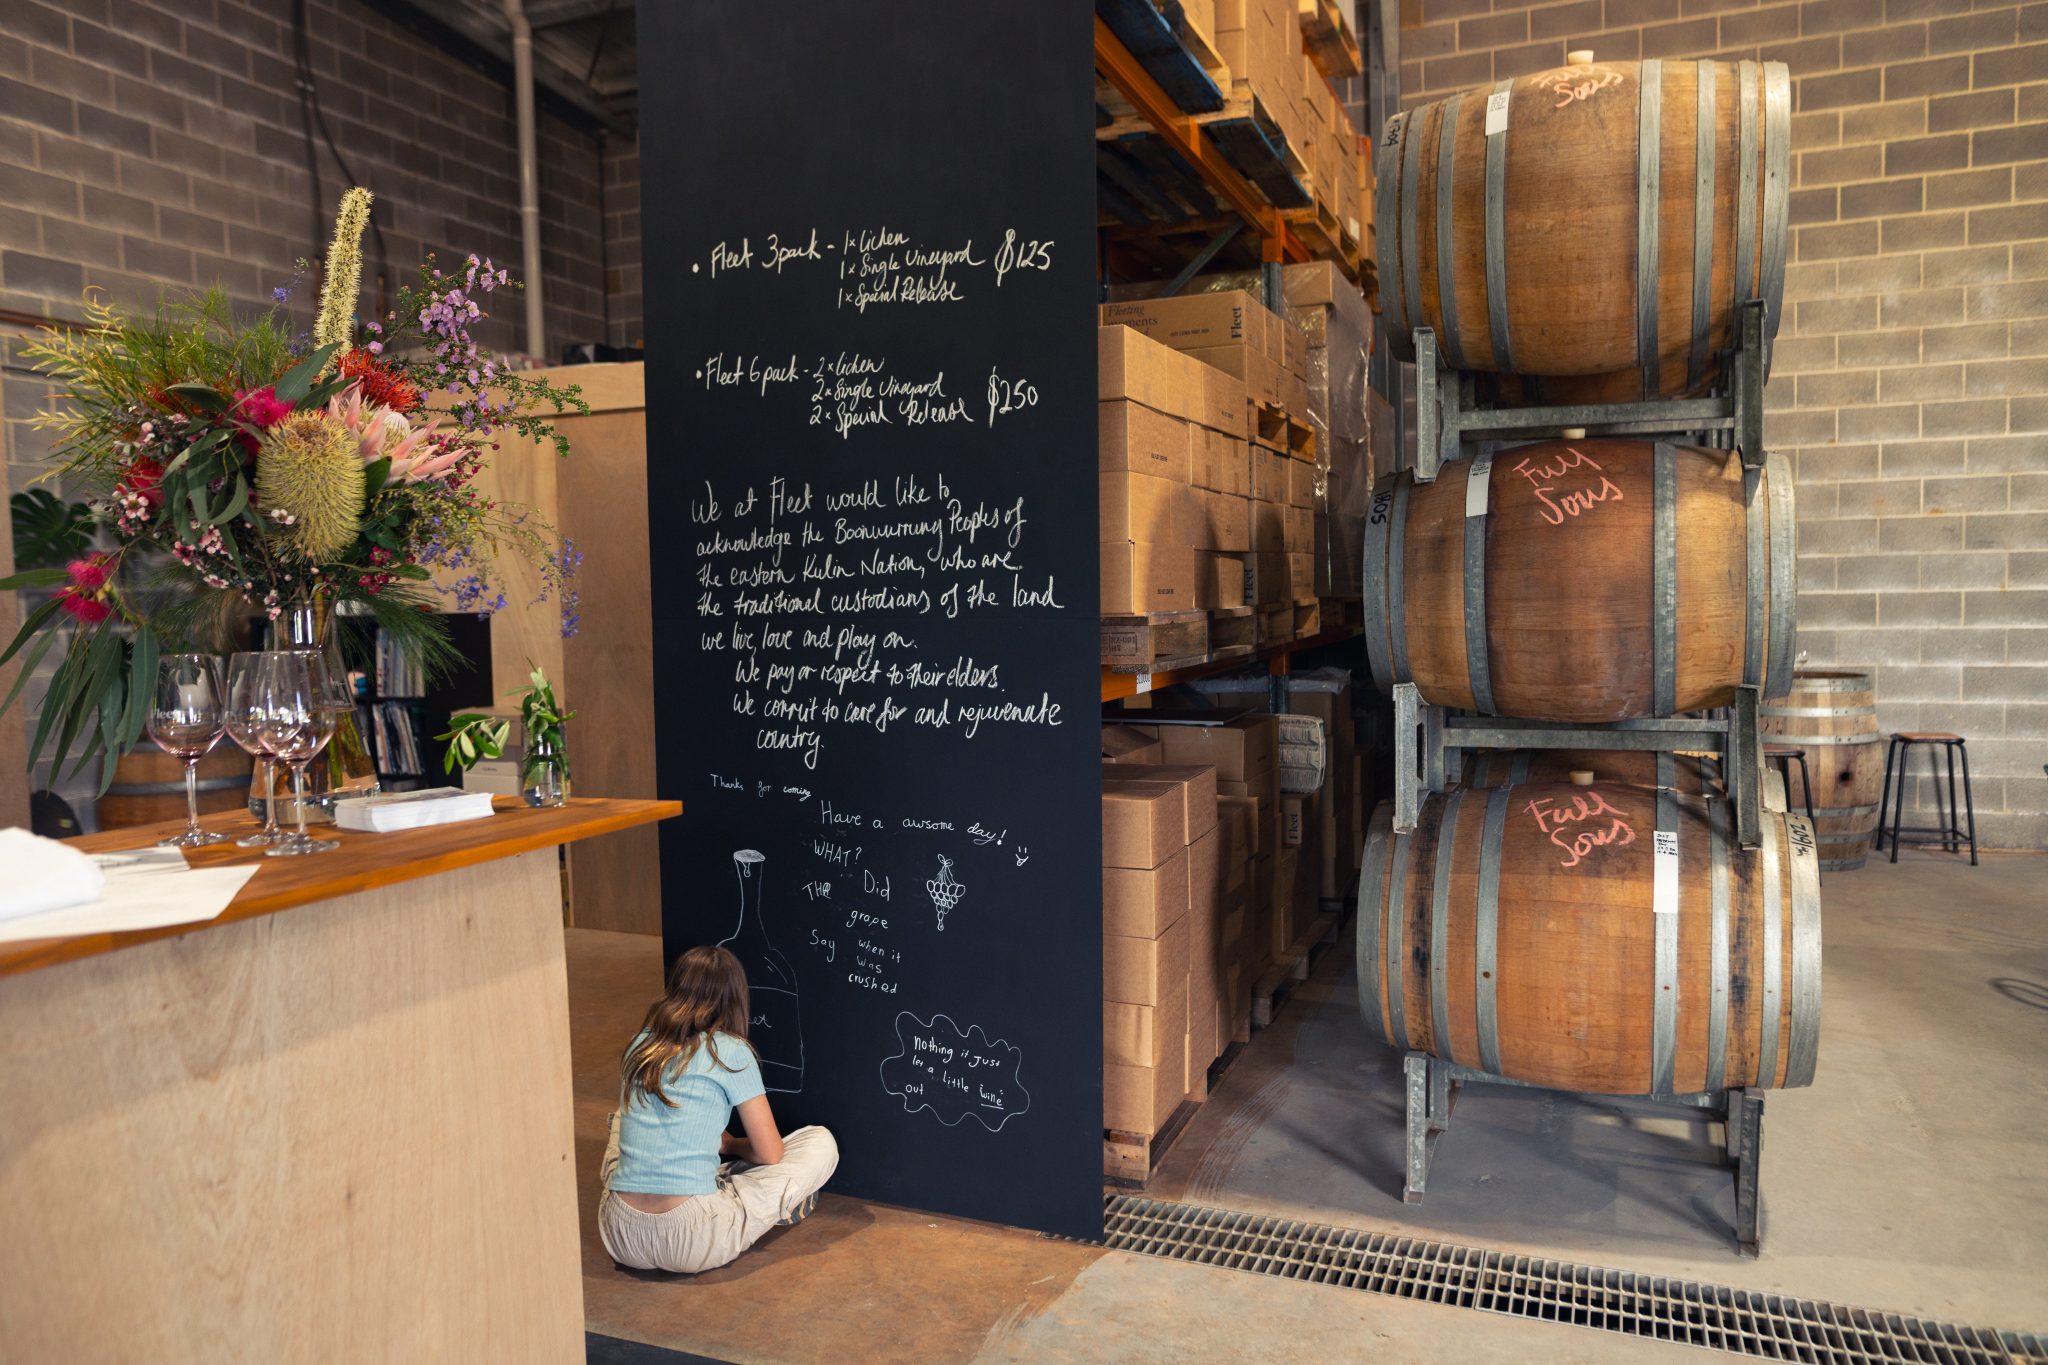 • Fleet 3pack - 1x Lichen
1x Single Vineyard $125
1x Special Release
• Fleet 6pack - 2x Lichen
2x Single Vineyard
2x Special Release $250
We at Fleet would like to
acknowledge the Boonwurrung Peoples of
the eastern Kulin Nation, who are
the traditional custodians of the land
we live, love and play on.
We pay or respect to their elders.
We commit to care for and rejuvenate
country.
Thanks for coming
Have a awsome day!
WHAT?
THe Did
grape
Say when it
was
crushed
Nothing it just
let a little "wine"
out
Fleeting
moments
Fleet
Fleet
Fleet
Full
Sous
Full
Sous
Full
Sous
1805
Fleet